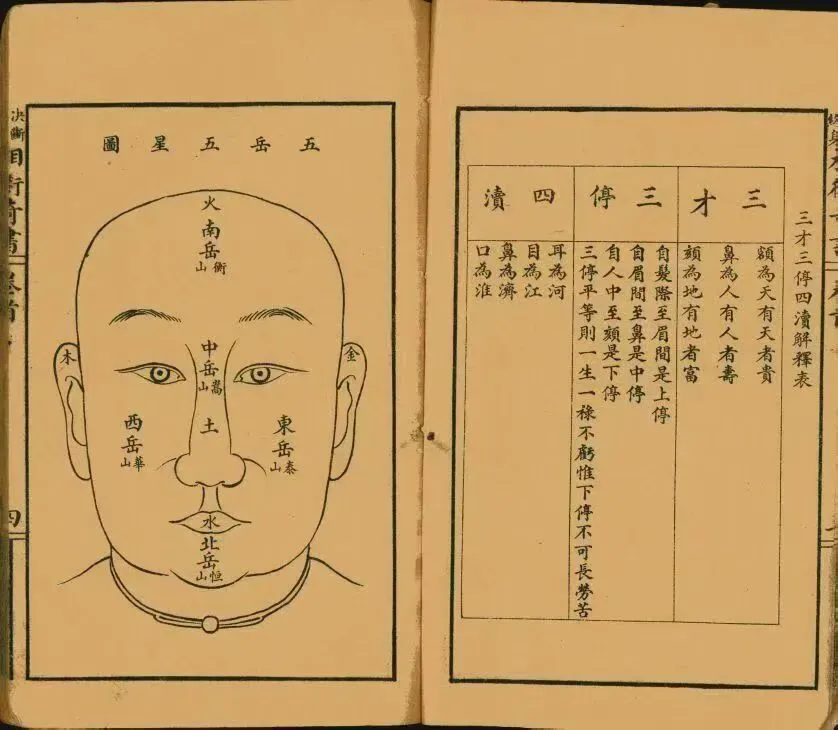 三才三停四瀆解釋表
三才
額為天有天者貴
鼻為人有人者壽
頦為地有地者富
三停
自髮際至眉間是上停
自眉間至鼻是中停
自人中至頦是下停
三停平等則一生一祿不虧惟下停不可長勞苦
四瀆
耳為河
目為江
鼻為濟
口為淮
五岳五星圖
火
南岳
衡山
金
中岳
嵩山
木
土
東岳
泰山
西岳
華山
水
北岳
恒山
決斷
卷首
四